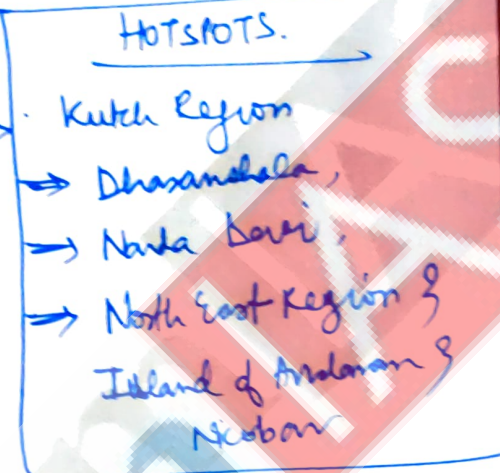 HOTSPOTS.
Kutch Region
→ Dharamshala,
→ Nanda Devi,
→ North East Region &
Island of Andaman &
Nicobar